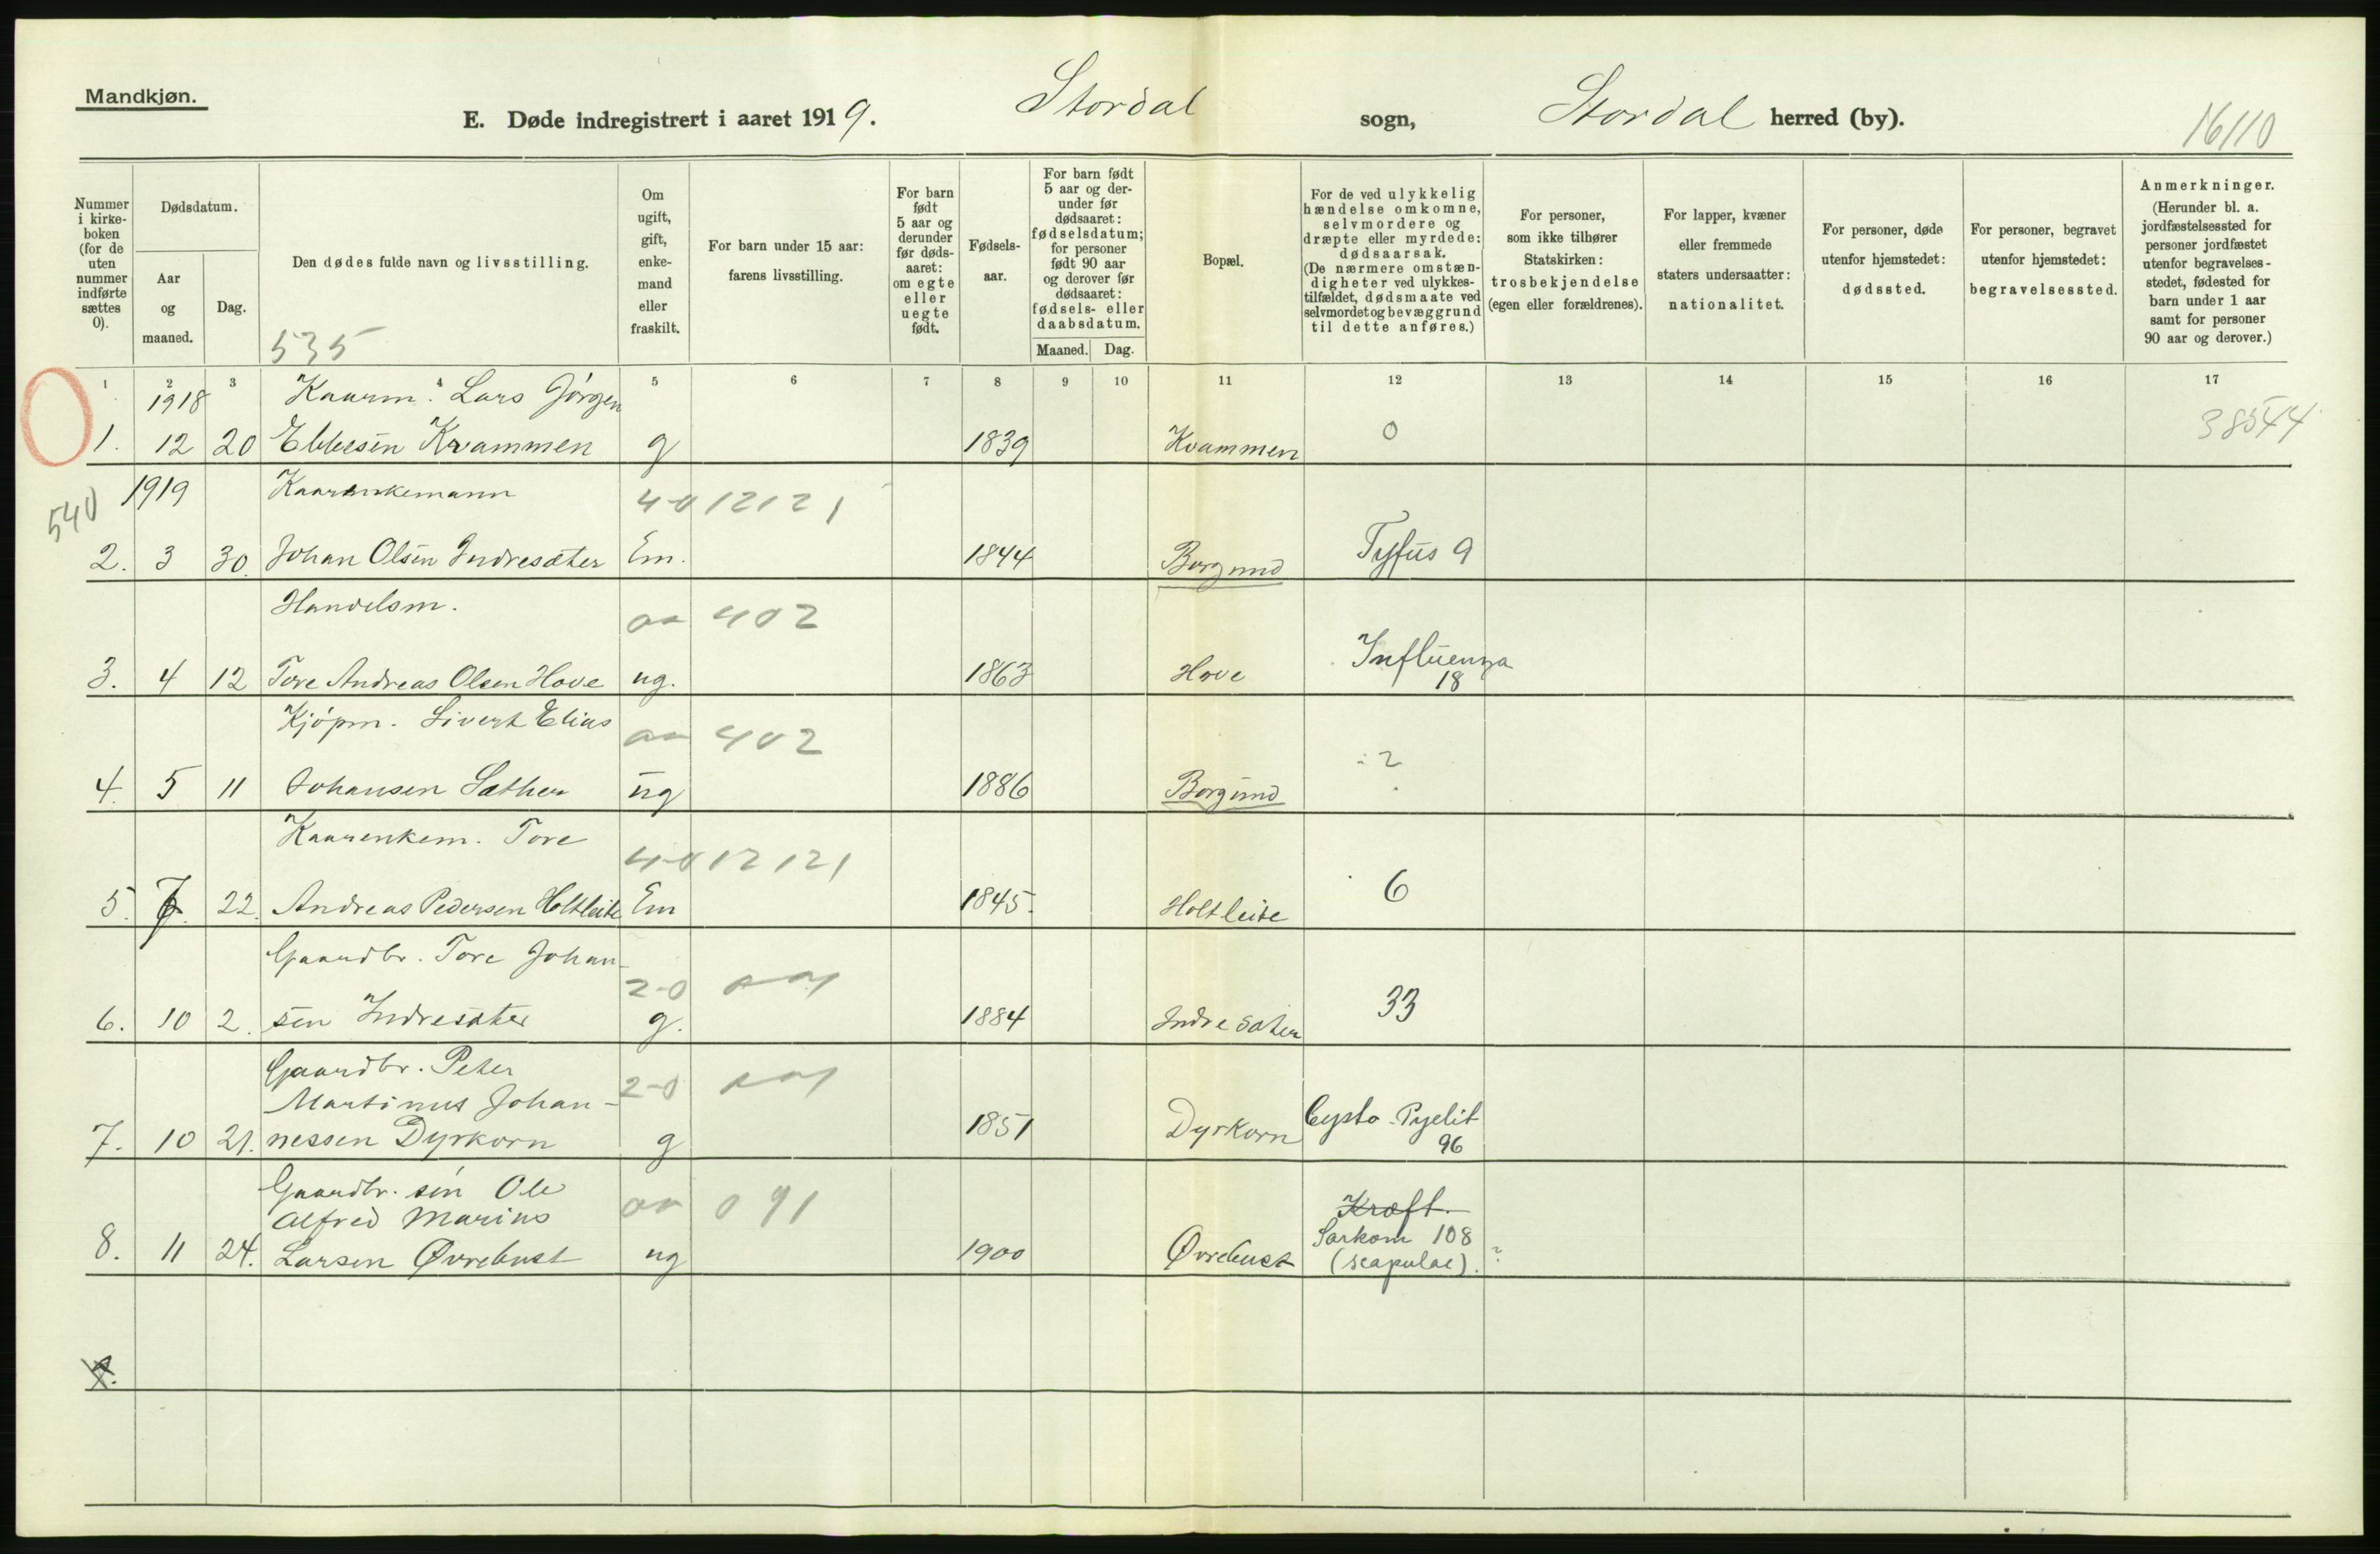 Mandkjøn.
E. Døde indregistrert i aaret 1919. Stordal sogn, Stordal herred (by).
16110
Nummer i kirkeboken (for de uten nummer indførte sættes 0).
Dødsdatum.
Aar og maaned.
Dag.
Den dødes fulde navn og livsstilling.
535
Om ugift, gift, enkemand eller fraskilt.
For barn under 15 aar: farens livsstilling.
For barn født 5 aar og derunder før dødsaaret: om egte eller uegte født.
Fødselsaar.
For barn født 5 aar og derunder før dødsaaret: fødselsdatum; for personer født 90 aar og derover før dødsaaret: fødsels- eller daabsdatum.
Maaned. Dag.
Bopæl.
For de ved ulykkelig hændelse omkomne, selvmordere og dræpte eller myrdede: dødsaarsak. (De nærmere omstændigheter ved ulykkestilfældet, dødsmaate ved selvmordet og bevæggrund til dette anføres.)
For personer, som ikke tilhører Statskirken: trosbekjendelse (egen eller forældrenes).
For lapper, kvæner eller fremmede staters undersaatter: nationalitet.
For personer, døde utenfor hjemstedet: dødssted.
For personer, begravet utenfor hjemstedet: begravelsessted.
Anmerkninger. (Herunder bl. a. jordfæstelsessted for personer jordfæstet utenfor begravelsesstedet, fødested for barn under 1 aar samt for personer 90 aar og derover.)
1 2 3 4 5 6 7 8 9 10 11 12 13 14 15 16 17
1918 Kaarm. Lars Jörgen
1. 12 20 Ebbesen Kvammen g 1839 Kvammen 0 38544
540 1919 Kaarenkemann 40 12121
2. 3 30. Johan Olsen Indresæter Em. 1844 Borgund Tyfus 9
Handelsm. aa 402
3. 4 12 Tore Andreas Olsen Hove ug. 1863 Hove Influenza 18
Kjöpm. Sivert Elias aa 402
4. 5 11 Johansen Sæther ug 1886 Borgund ?
Kaarenkem. Tore 40 12121
5. 7. 22. Andreas Pedersen Holtleite Em 1845. Holtleite 6
Gaardbr. Tore Johan- 2-0
6. 10 2. sen Indresæter g. 1884 Indresæter 33
Gaardbr. Peter 2-0
Martinus Johan-
7. 10 21. nessen Dyrkorn g 1851 Dyrkorn Cysto-Pyelit 96
Gaardbr. sön Ole aa 091
Alfred Marius Kræft.
8. 11 24. Larsen Øvrebust ug 1900 Øvrebust Sarkom 108 (scapulae). ?
9.